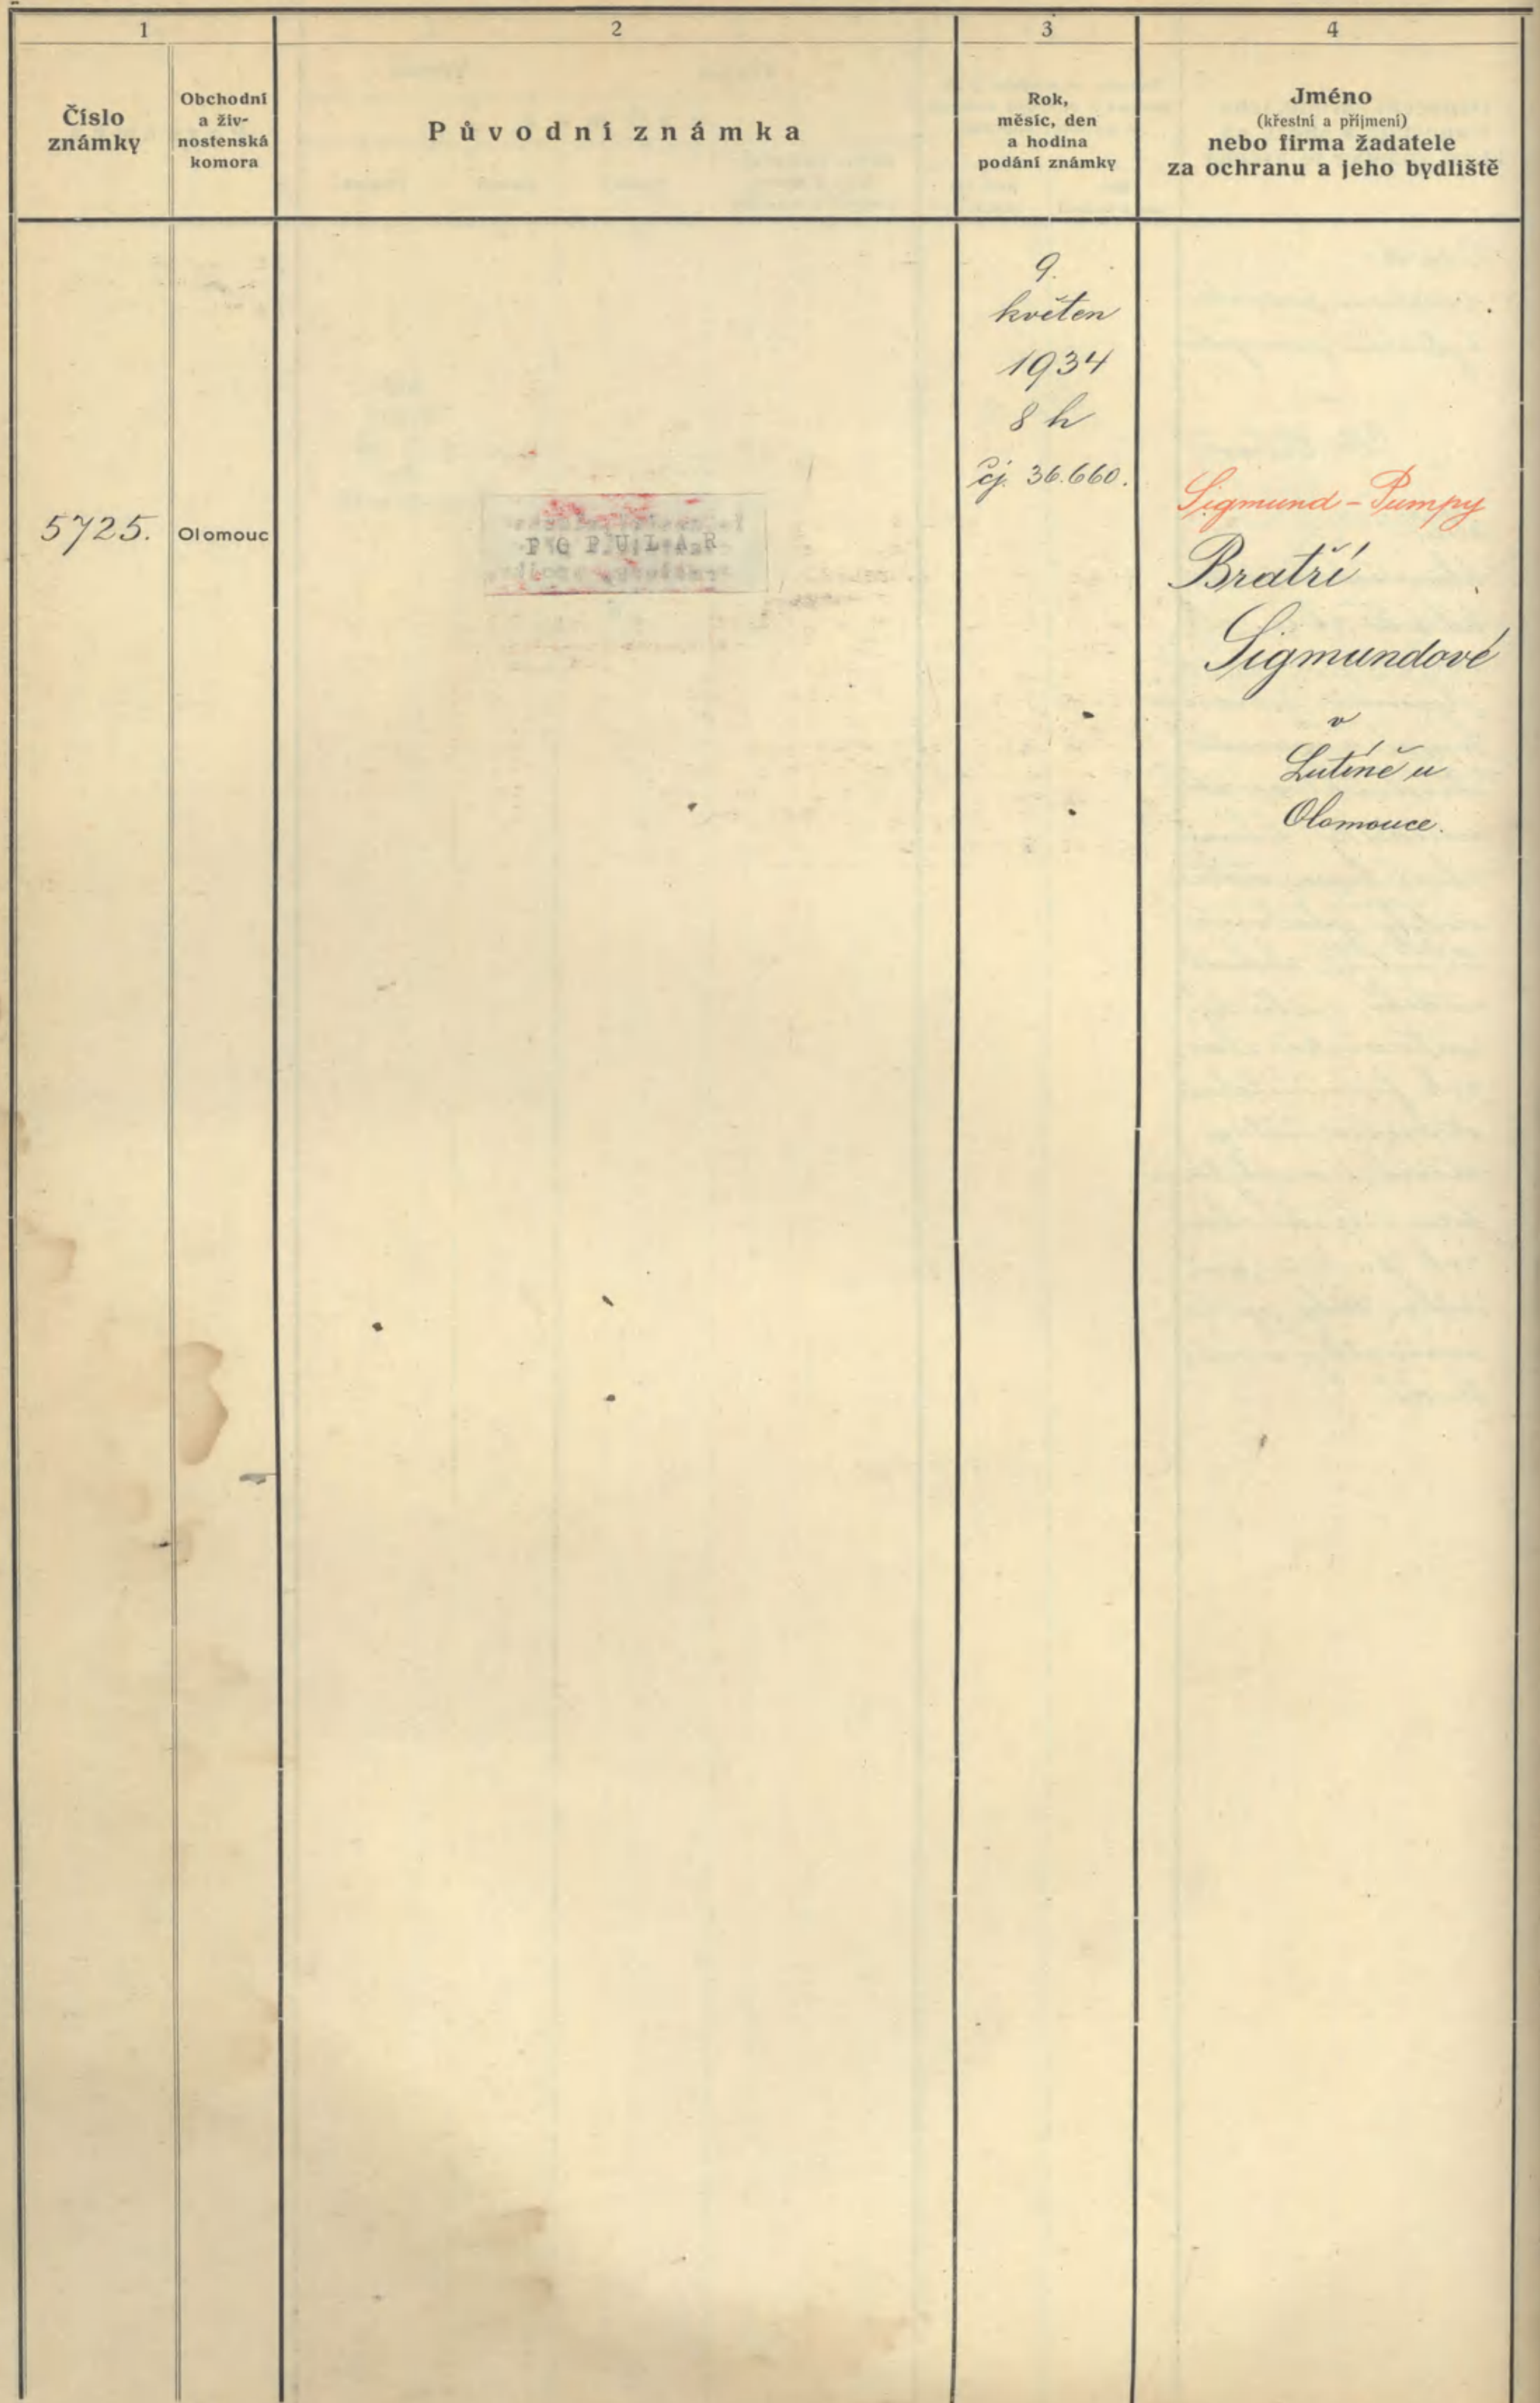 1
2
3
4
Číslo
známky
Obchodní
a živ-
nostenská
komora
Původní známka
Rok,
měsíc, den
a hodina
podání známky
Jméno
(křestní a příjmení)
nebo firma žadatele
za ochranu a jeho bydliště
9.
květen
1934
8 h
čj. 36.660.
5725.
Olomouc
POPULAR
Sigmund - Pumpy
Bratří
Sigmundové
v
Lutíně u
Olomouce.